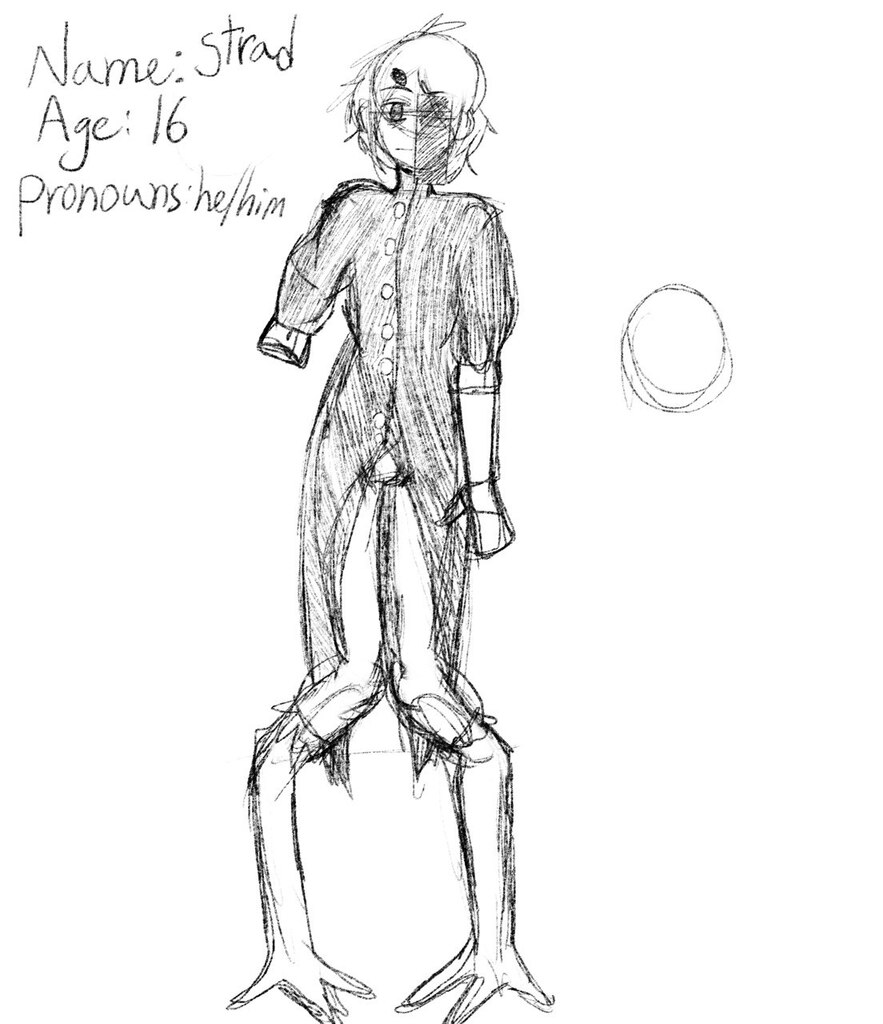 Name: Strad
Age: 16
pronouns: he/him